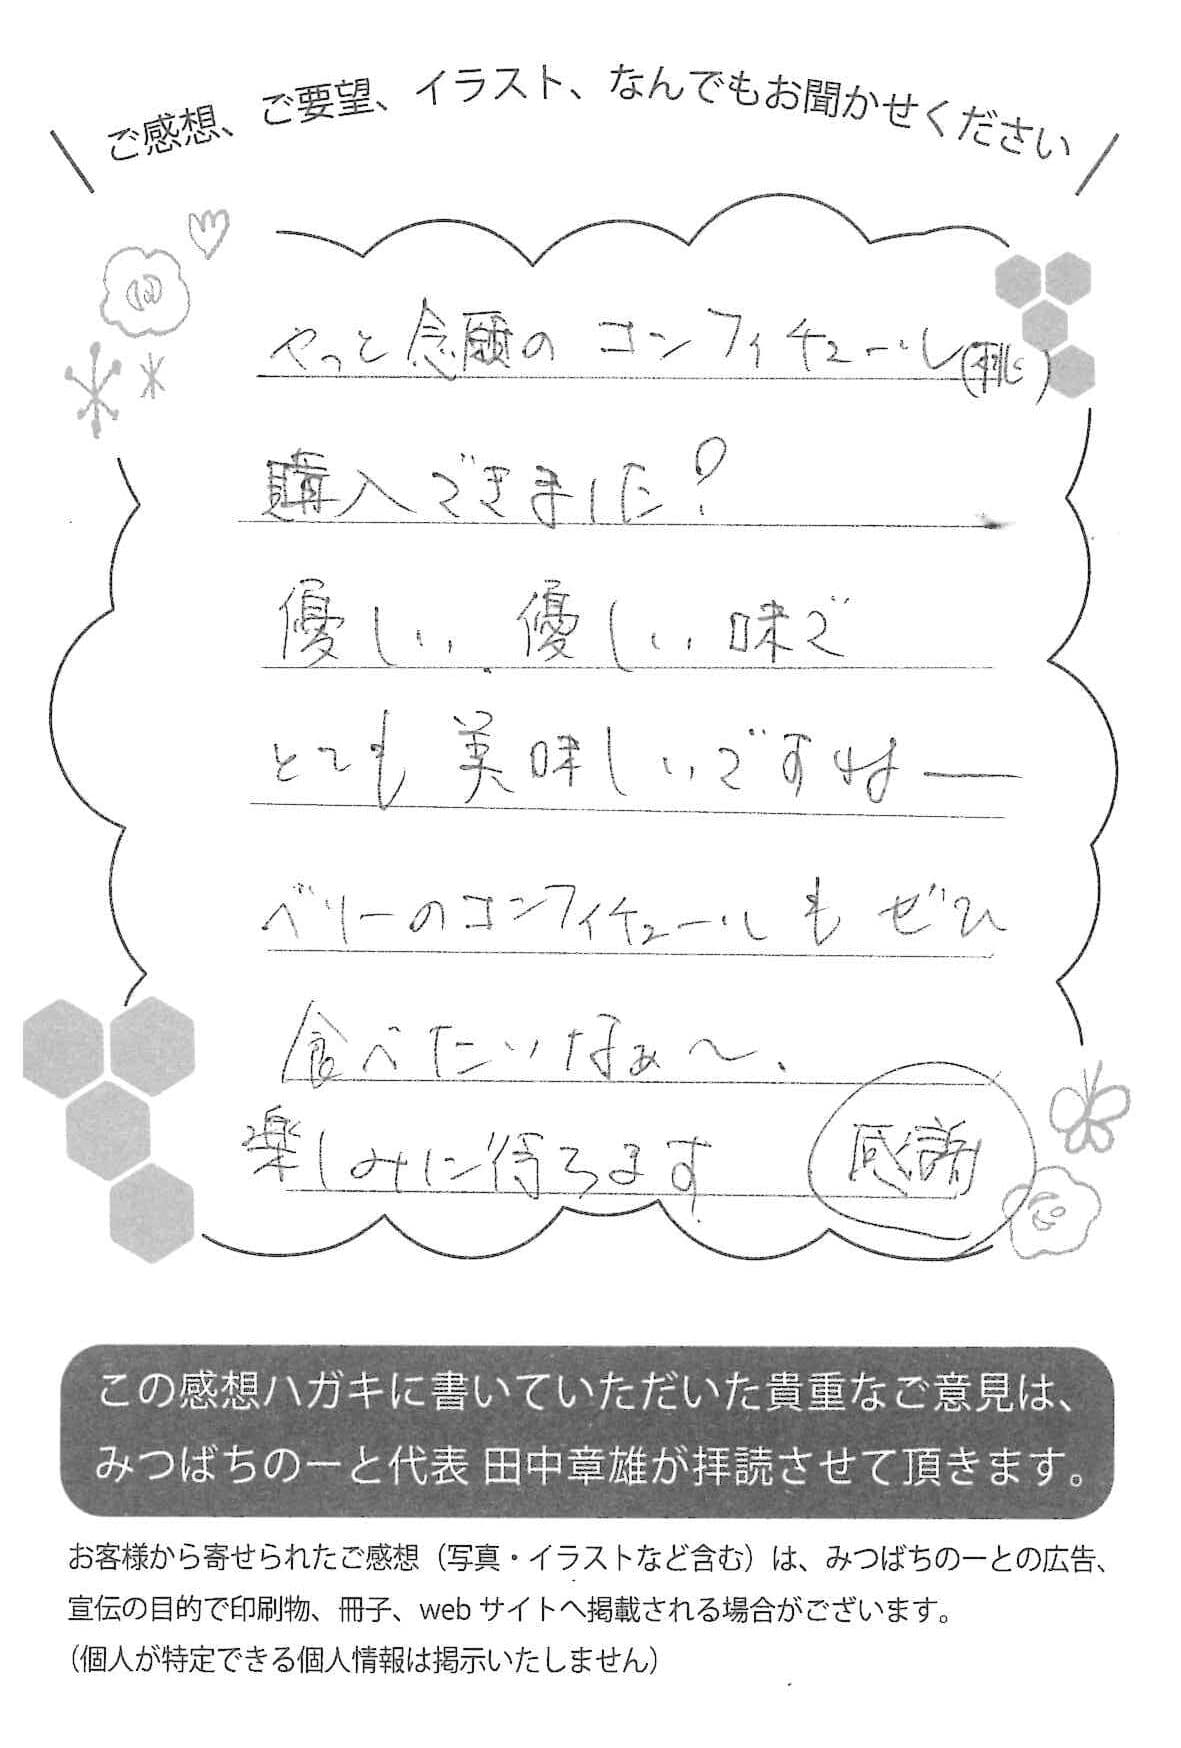 ご感想、ご要望、イラスト、なんでもお聞かせください
やっと念願の コンフィチュール(桃)
購入できました!
優しい、優しい味で
とても美味しいですねー
ベリーのコンフィチュールも ぜひ
食べたいなぁ〜、
楽しみに待ろます 感謝
この感想ハガキに書いていただいた貴重なご意見は、
みつばちのーと代表 田中章雄が拝読させて頂きます。
お客様から寄せられたご感想（写真・イラストなど含む）は、みつばちのーとの広告、
宣伝の目的で印刷物、冊子、web サイトへ掲載される場合がございます。
（個人が特定できる個人情報は掲示いたしません）